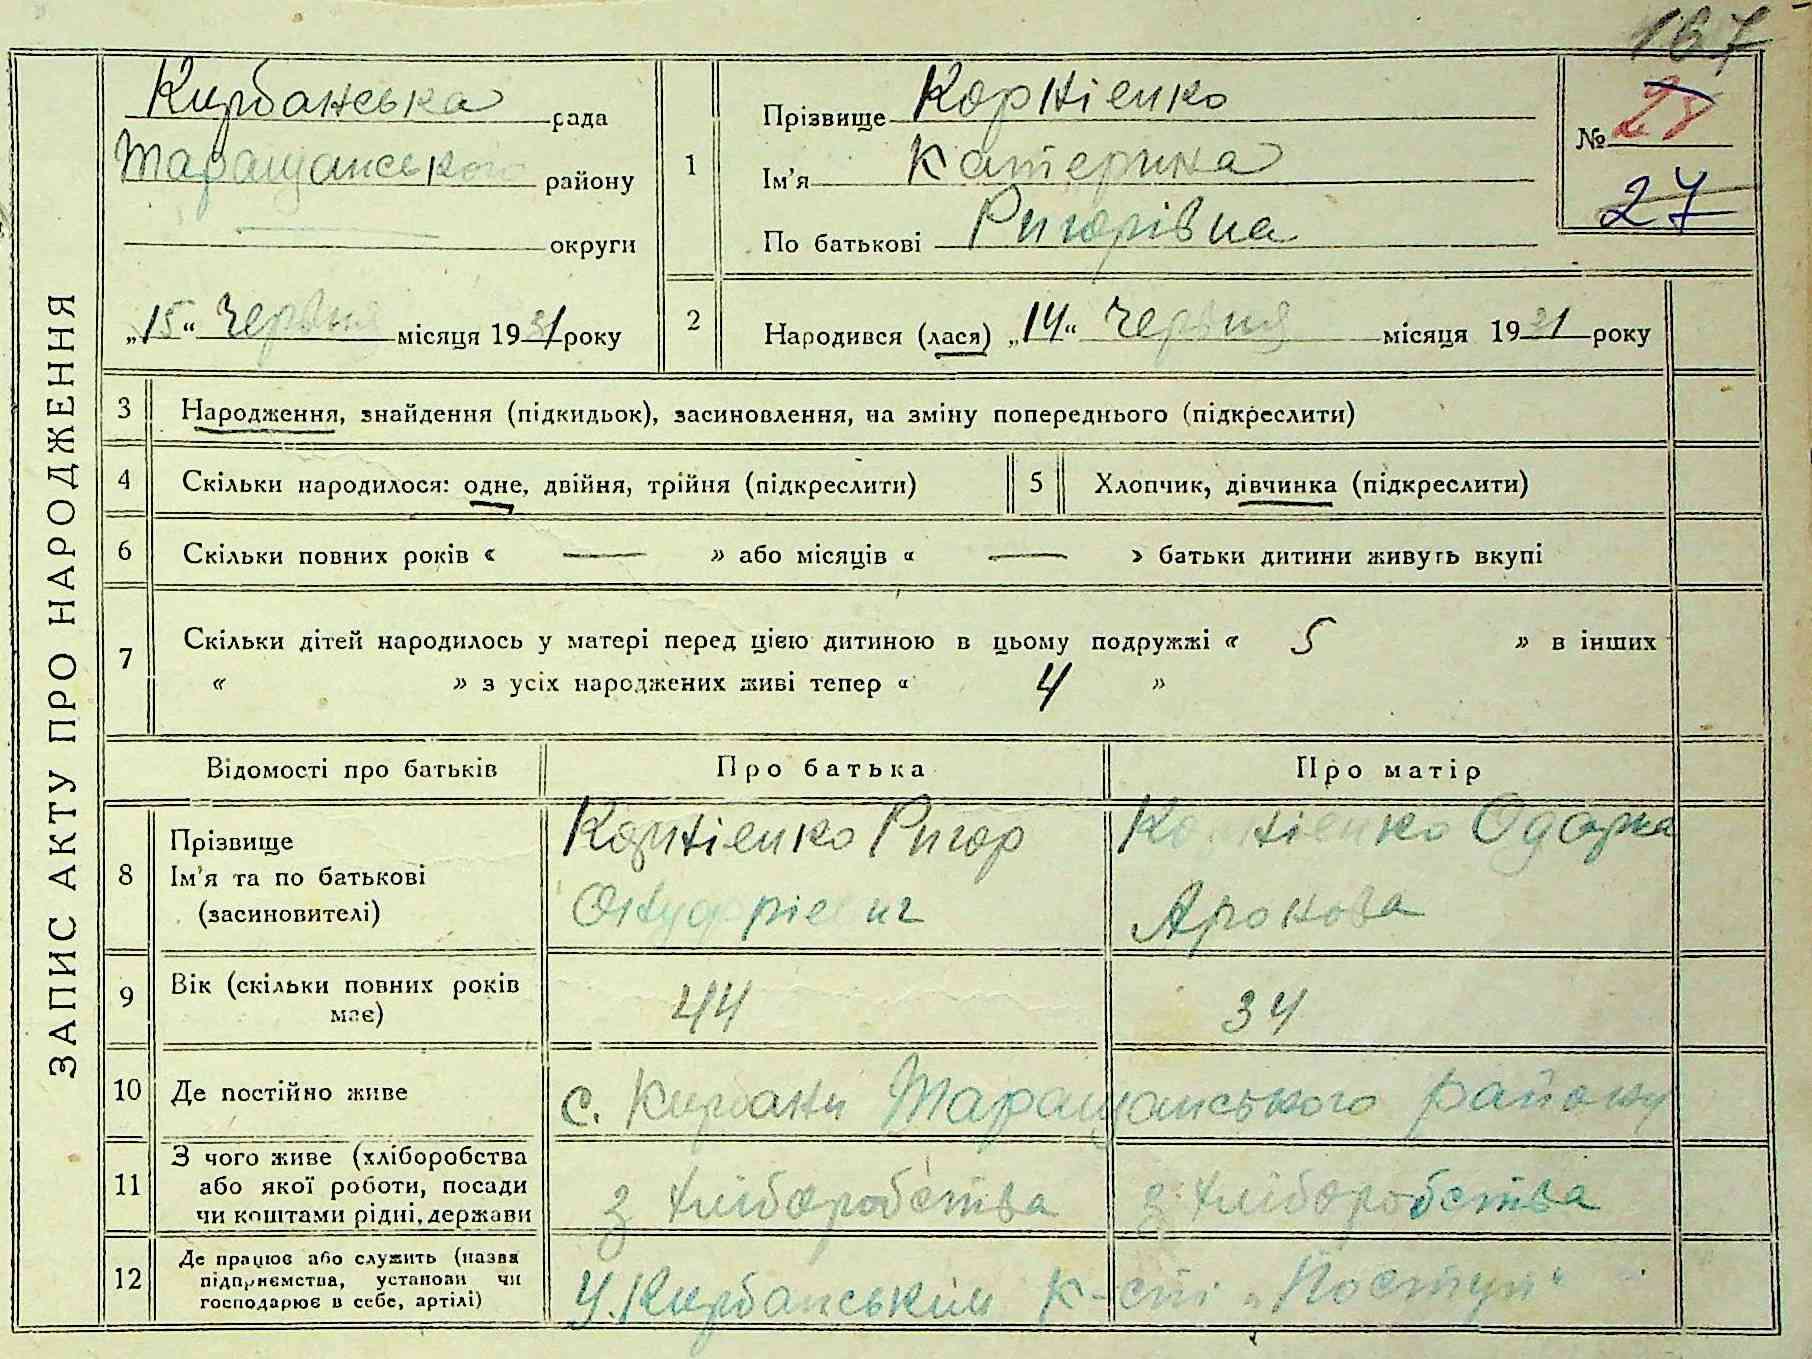 167
Кирбанська рада
Таращанського району
округи
„15“ Червня місяця 1931 року
1
Прізвище Корнієнко
Ім'я Катерина
По батькові Ригорівна
№ 28
27
2
Народився (лася) „14“ Червня місяця 1931 року
ЗАПИС АКТУ ПРО НАРОДЖЕННЯ
3 Народження, знайдення (підкидьок), засиновлення, на зміну попереднього (підкреслити)
4 Скільки народилося: одне, двійня, трійня (підкреслити) 5 Хлопчик, дівчинка (підкреслити)
6 Скільки повних років « — » або місяців « — » батьки дитини живуть вкупі
7 Скільки дітей народилось у матері перед цією дитиною в цьому подружжі « 5 » в інших
« » з усіх народжених живі тепер « 4 »
Відомості про батьків Про батька Про матір
8 Прізвище
Ім'я та по батькові
(засиновителі)
Корнієнко Ригор
Онуфрієвич
Корнієнко Одарка
Аронова
9 Вік (скільки повних років
має)
44 34
10 Де постійно живе с. Кирбани Таращанського району
11 З чого живе (хліборобства
або якої роботи, посади
чи коштами рідні, держави
з хліборобства з хліборобства
12 Де працює або служить (назва
підприємства, установи чи
господарює в себе, артілі)
У. Кирбанським к-сті „Поступ“